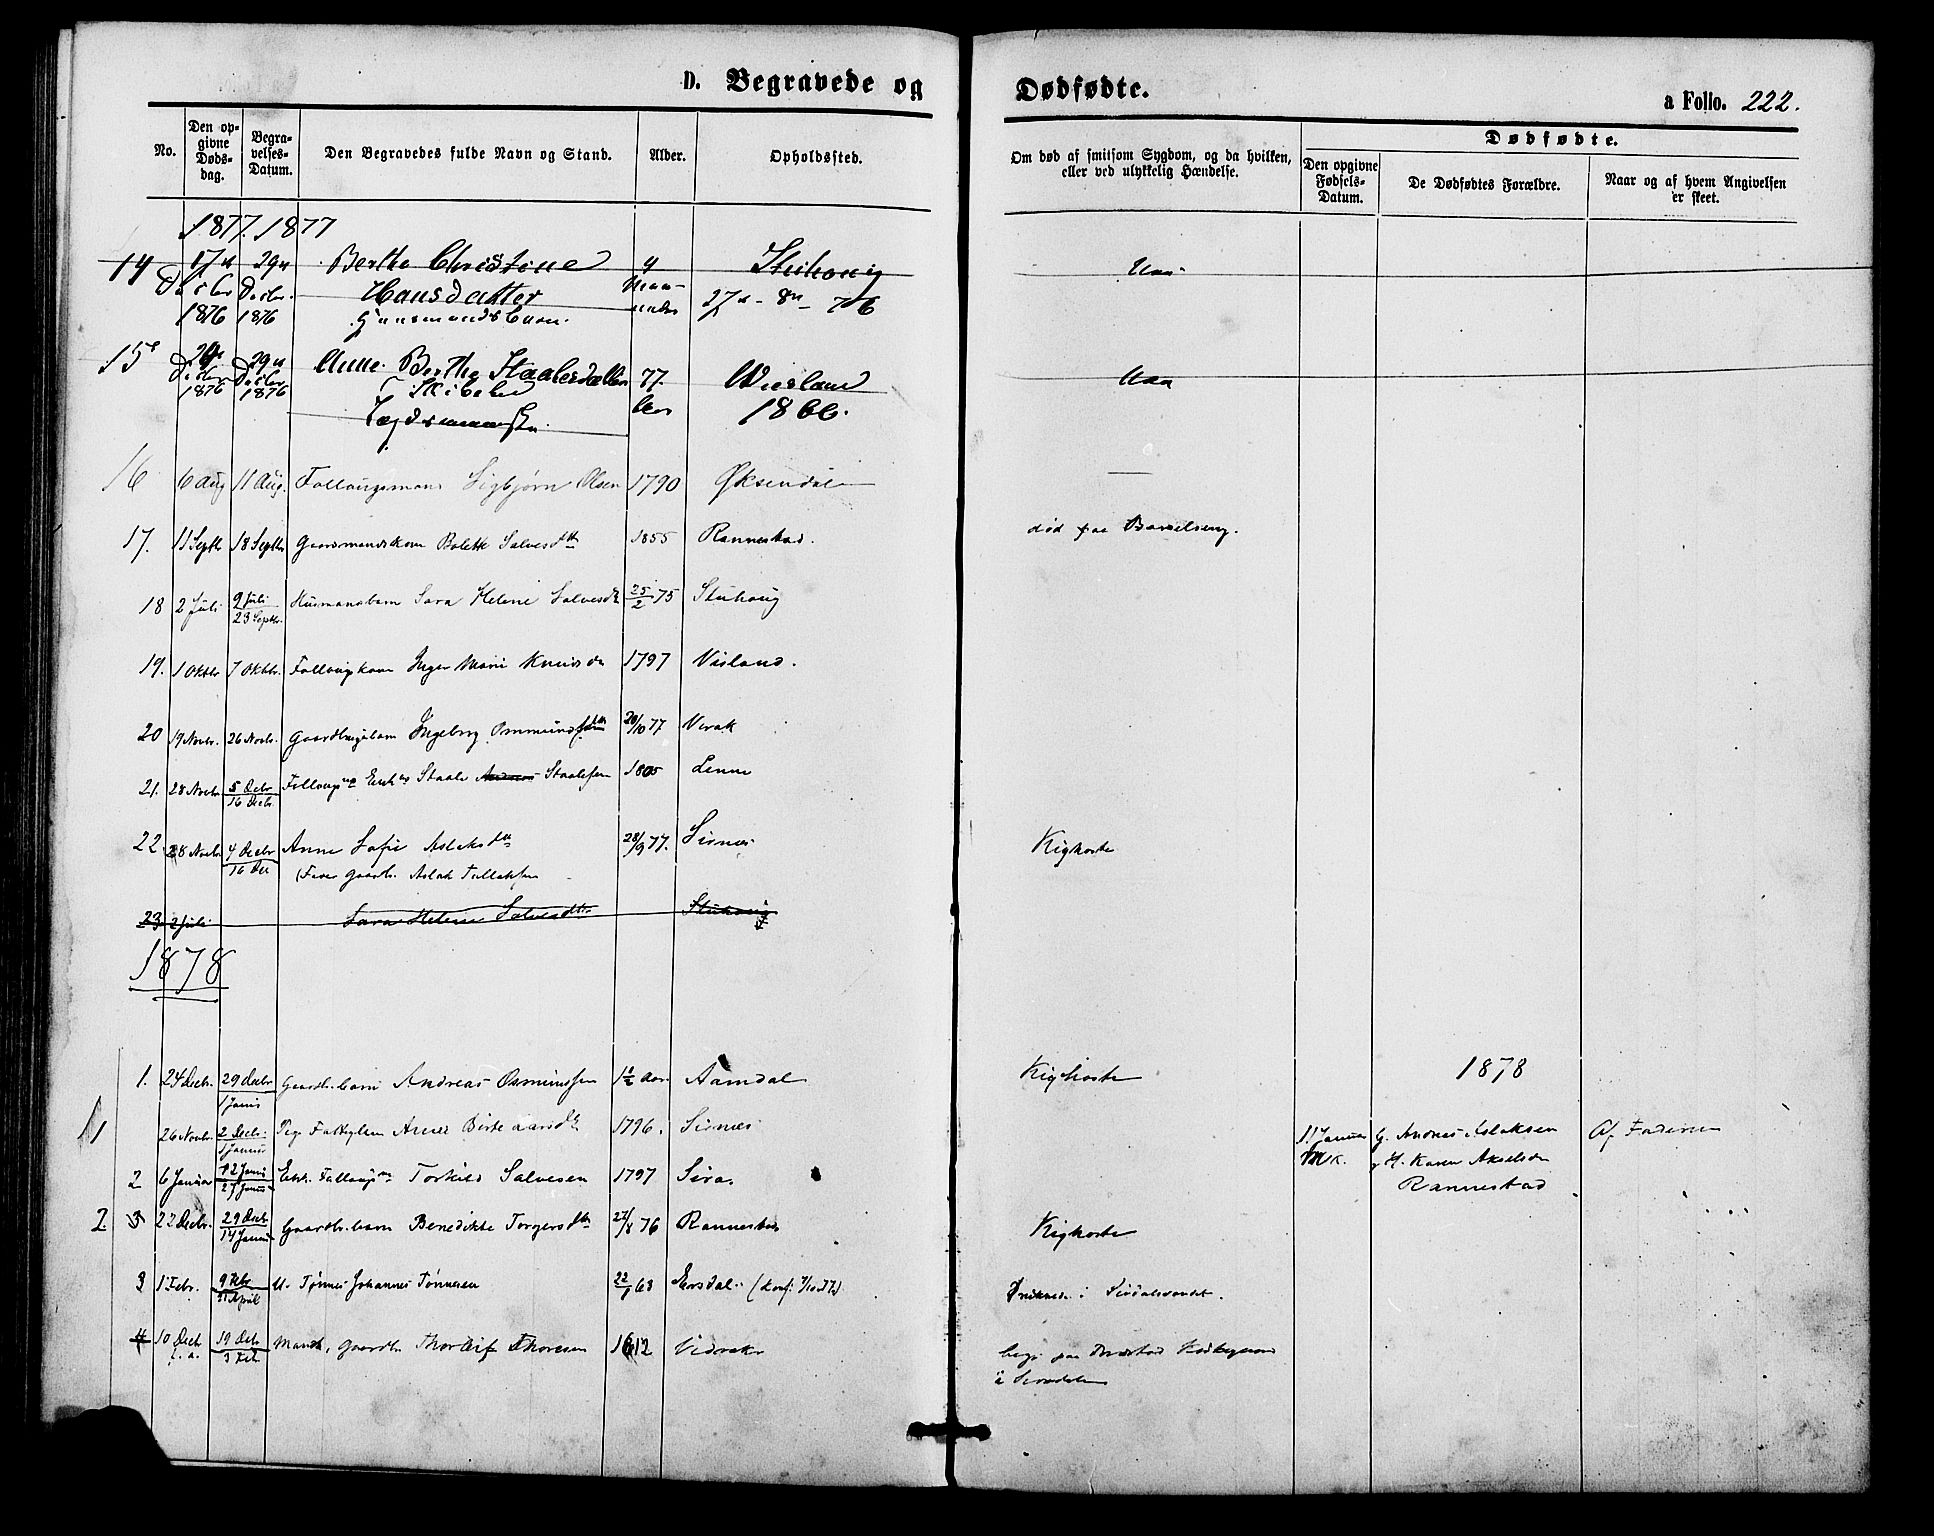 D. Begravede og Dødfødte. a Follo. 222.
No. Den opgivne Dødsdag. Begravelses-Datum. Den Begravedes fulde Navn og Stand. Alder. Opholdssted. Om død af smitsom Sygdom, og da hvilken, eller ved ulykkelig Hændelse. Dødfødte.
Den opgivne Fødsels-Datum. De Dødfødtes Forældre. Naar og af hvem Angivelsen er skeet.
1877. 1877
14 17de 29de Berthe Christine 4 Stuhoug
Decbr Decbr. Hansdatter Maaneder 27de - 8de - 76
1876 1876 Huusmandsbarn.
15 29de Anne Berthe Staalesdatter 77 Viisland
Decbr Decbr 1866.
1876 1876 Lægdsmandske
16 6 Aug 11 Aug. Follougsmand Sigbjørn Olsen 1790 Øksendal —
17. 11 Septbr 18 Septbr Gaardmandskone Bolette Salvesdtr 1855 Rannestad. død paa Barselseng.
18 2 Juli 9 Juli Husmandsbarn Sara Helene Salvesdtr 25/2 75 Stuhoug
23 Septbr.
19. 1 Oktbr 7 Oktbr. Follougskone Inger Marie 1797 Visland.
20 19 Novbr. 26 Novbr. Ingeborg Ommundsdtr 20/10 77 Virak
21. 28 Novbr 5 Decbr Staale Andreas Staalesen 1805 Lenne
16 Decbr.
22 28 Novbr 4 Decbr Anne Sofie Aslaksdtr 28/9 77. Sirnes Kighoste
16 Dec (Faver Gaardbr. Aslak Tallaksen
23 2 Juli Sara Helene Salvesdtr Stuhoug
1878
1. 24 Decbr. 29 Decbr Gaardbr.barn Andreas Osmundsen 1½ Aar Aamdal Kighoste 1878
1 Januar
1 26 Novbr. 2 Decbr. Pige Fattiglem Anne Birte 1796. Sirnes 11 Januar G. Andreas Aslaksen Af Faderen
1 Januar M.K. og H. Karen Akselsdr
2 6 Januar 12 Januar Torkild Salvesen 1797 Sira. Rannestad
27 Januar
2. 3 22 Decbr. 29 Decbr Gaardbr.barn Benedikte Torgersdtr 27/8 76 Rannestad Kighoste
14 Januar
3 1 Febr. 9 Febr U. Tønnes Johannes Tønnesen 22/1 63 Ersdal. Druknede i Sirdalsvandet.
April
4 10 Decbr 19 Decbr Gaardbr Thorleif Thoresen 1812 Vidrak begr. paa
f. a. 3 Feb. i Sirdalen